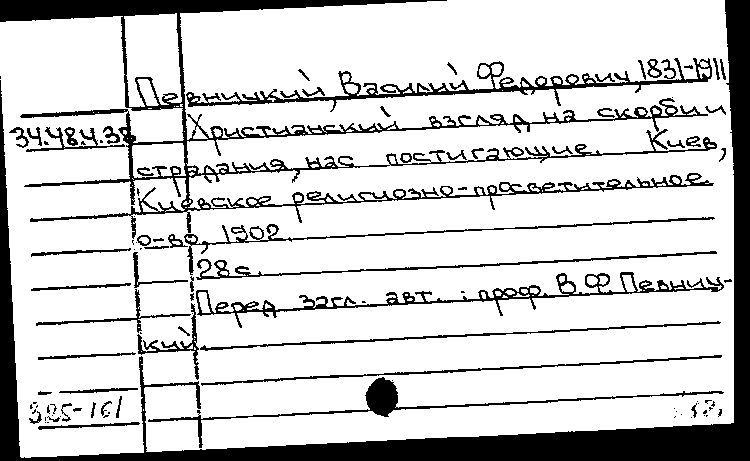 Певницкий, Василий Федорович, 1831-1911
34.48.4.38 Христианский взгляд на скорби и
страдания, нас постигающие. Киев,
Киевское религиозно-просветительное
о-во, 1902.
28 с.
Перед загл. авт.: проф. В.Ф. Певниц-
кий.
325-161